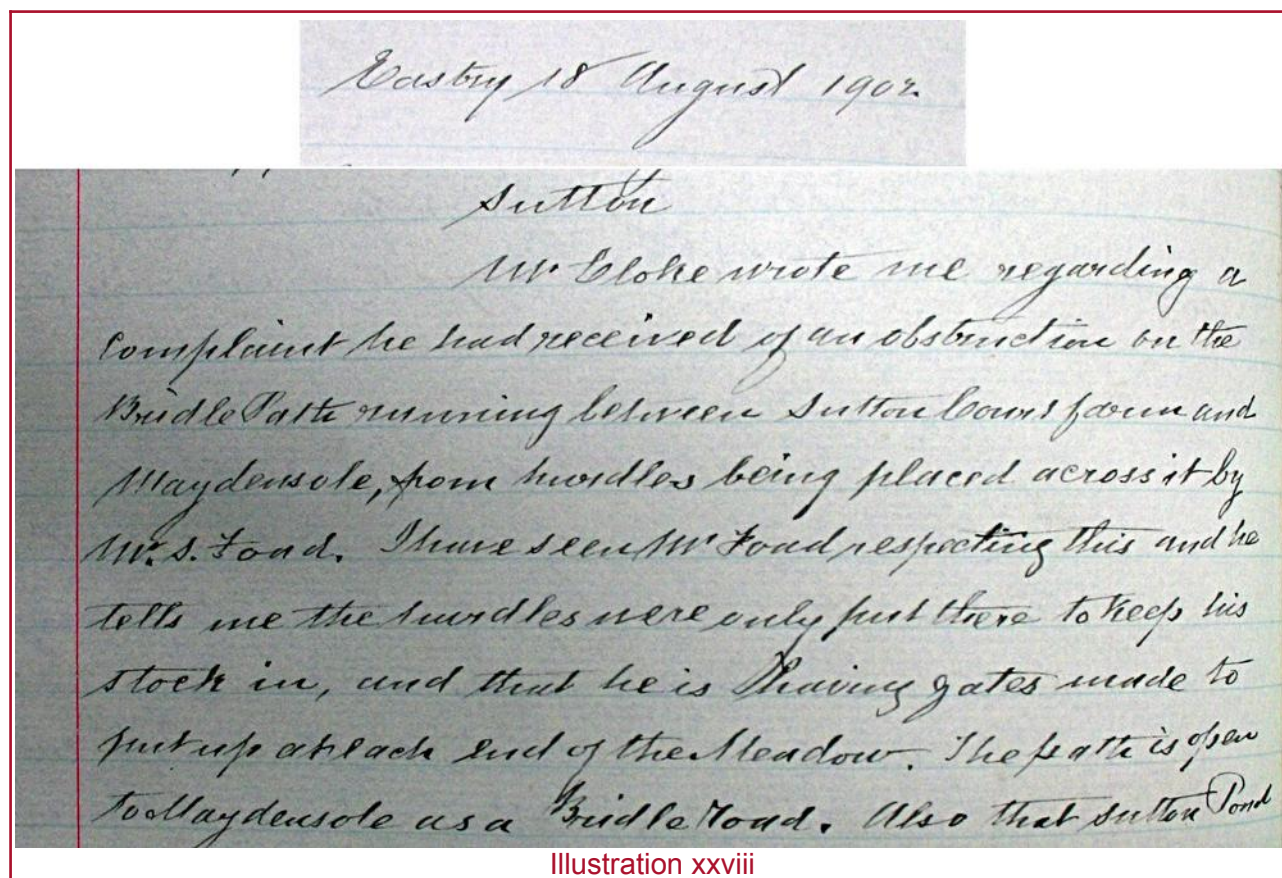 Eastry 18 August 1902
Sutton
Mr Cloke wrote me regarding a
complaint he had received of an obstruction on the
Bridle Path running between Sutton Court farm and
Maydensole, from hurdles being placed across it by
Mr. S. Foad. I have seen Mr Foad respecting this and he
tells me the hurdles were only put there to keep his
stock in, and that he is having gates made to
put up at each end of the Meadow. The path is open
to Maydensole as a Bridle road. Also that Sutton Pond
Illustration xxviii